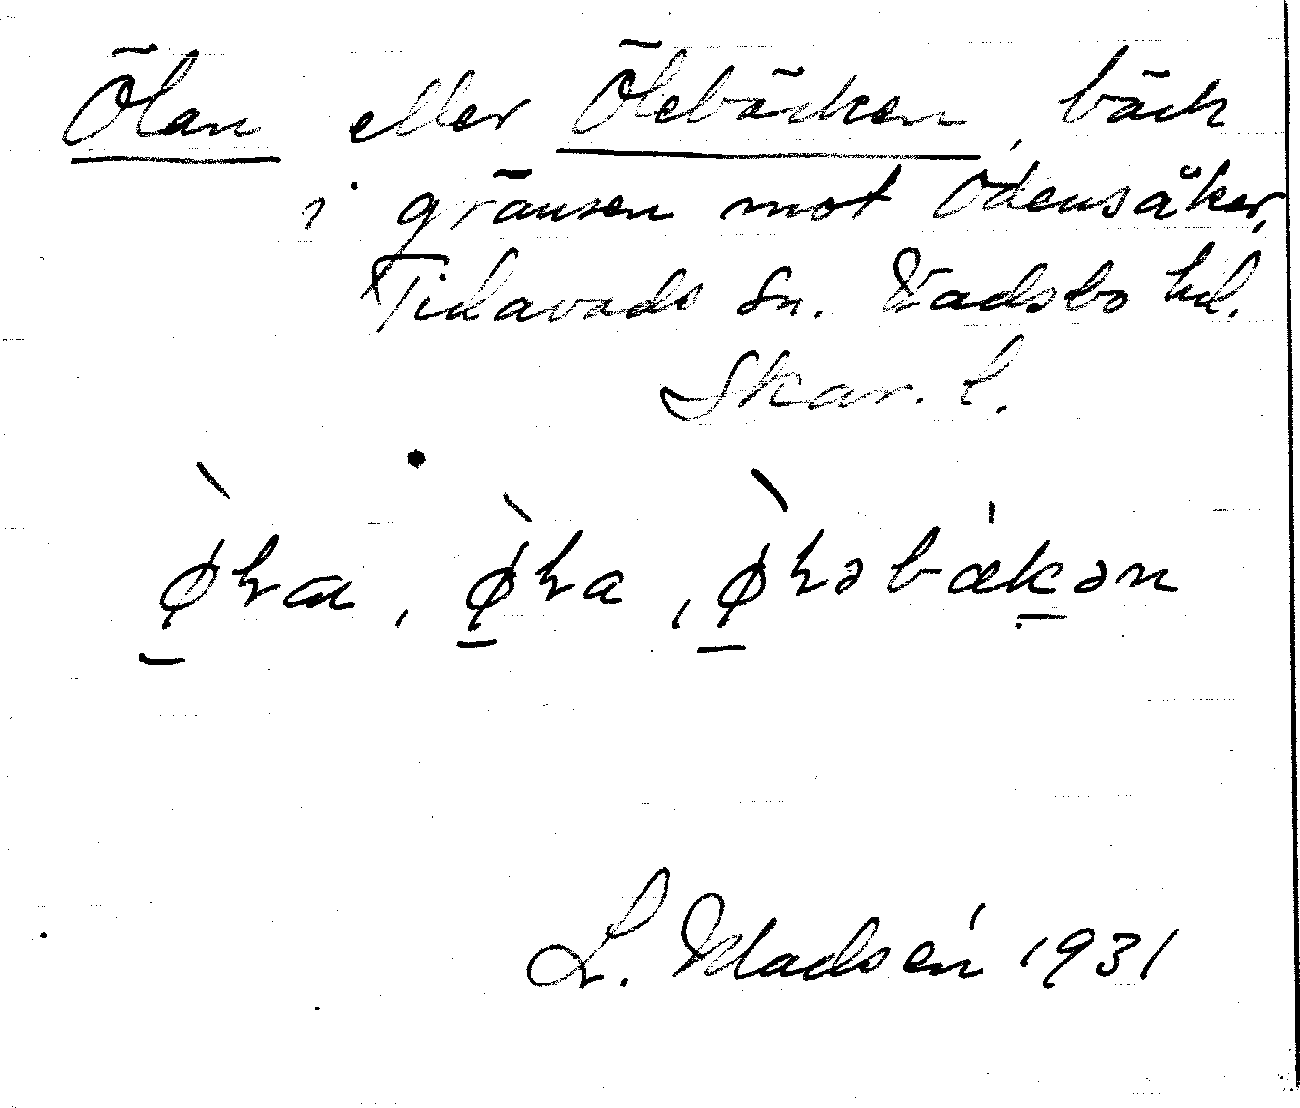 Ölan eller Ölebäcken, bäck
i gränsen mot Odensåker,
Tidavads sn. Vadsbo hd.
Skar. l.
L. Madsén 1931